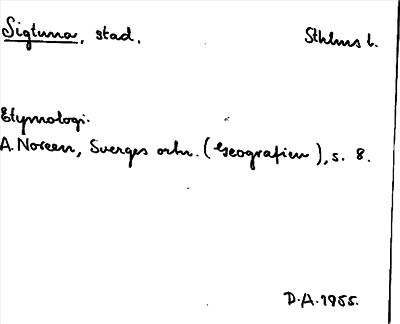 Sigtuna, stad. Sthlms l.
Etymologi.
A. Noreen, Sverges ortn. (Geografien), s. 8.
D.A. 1955.